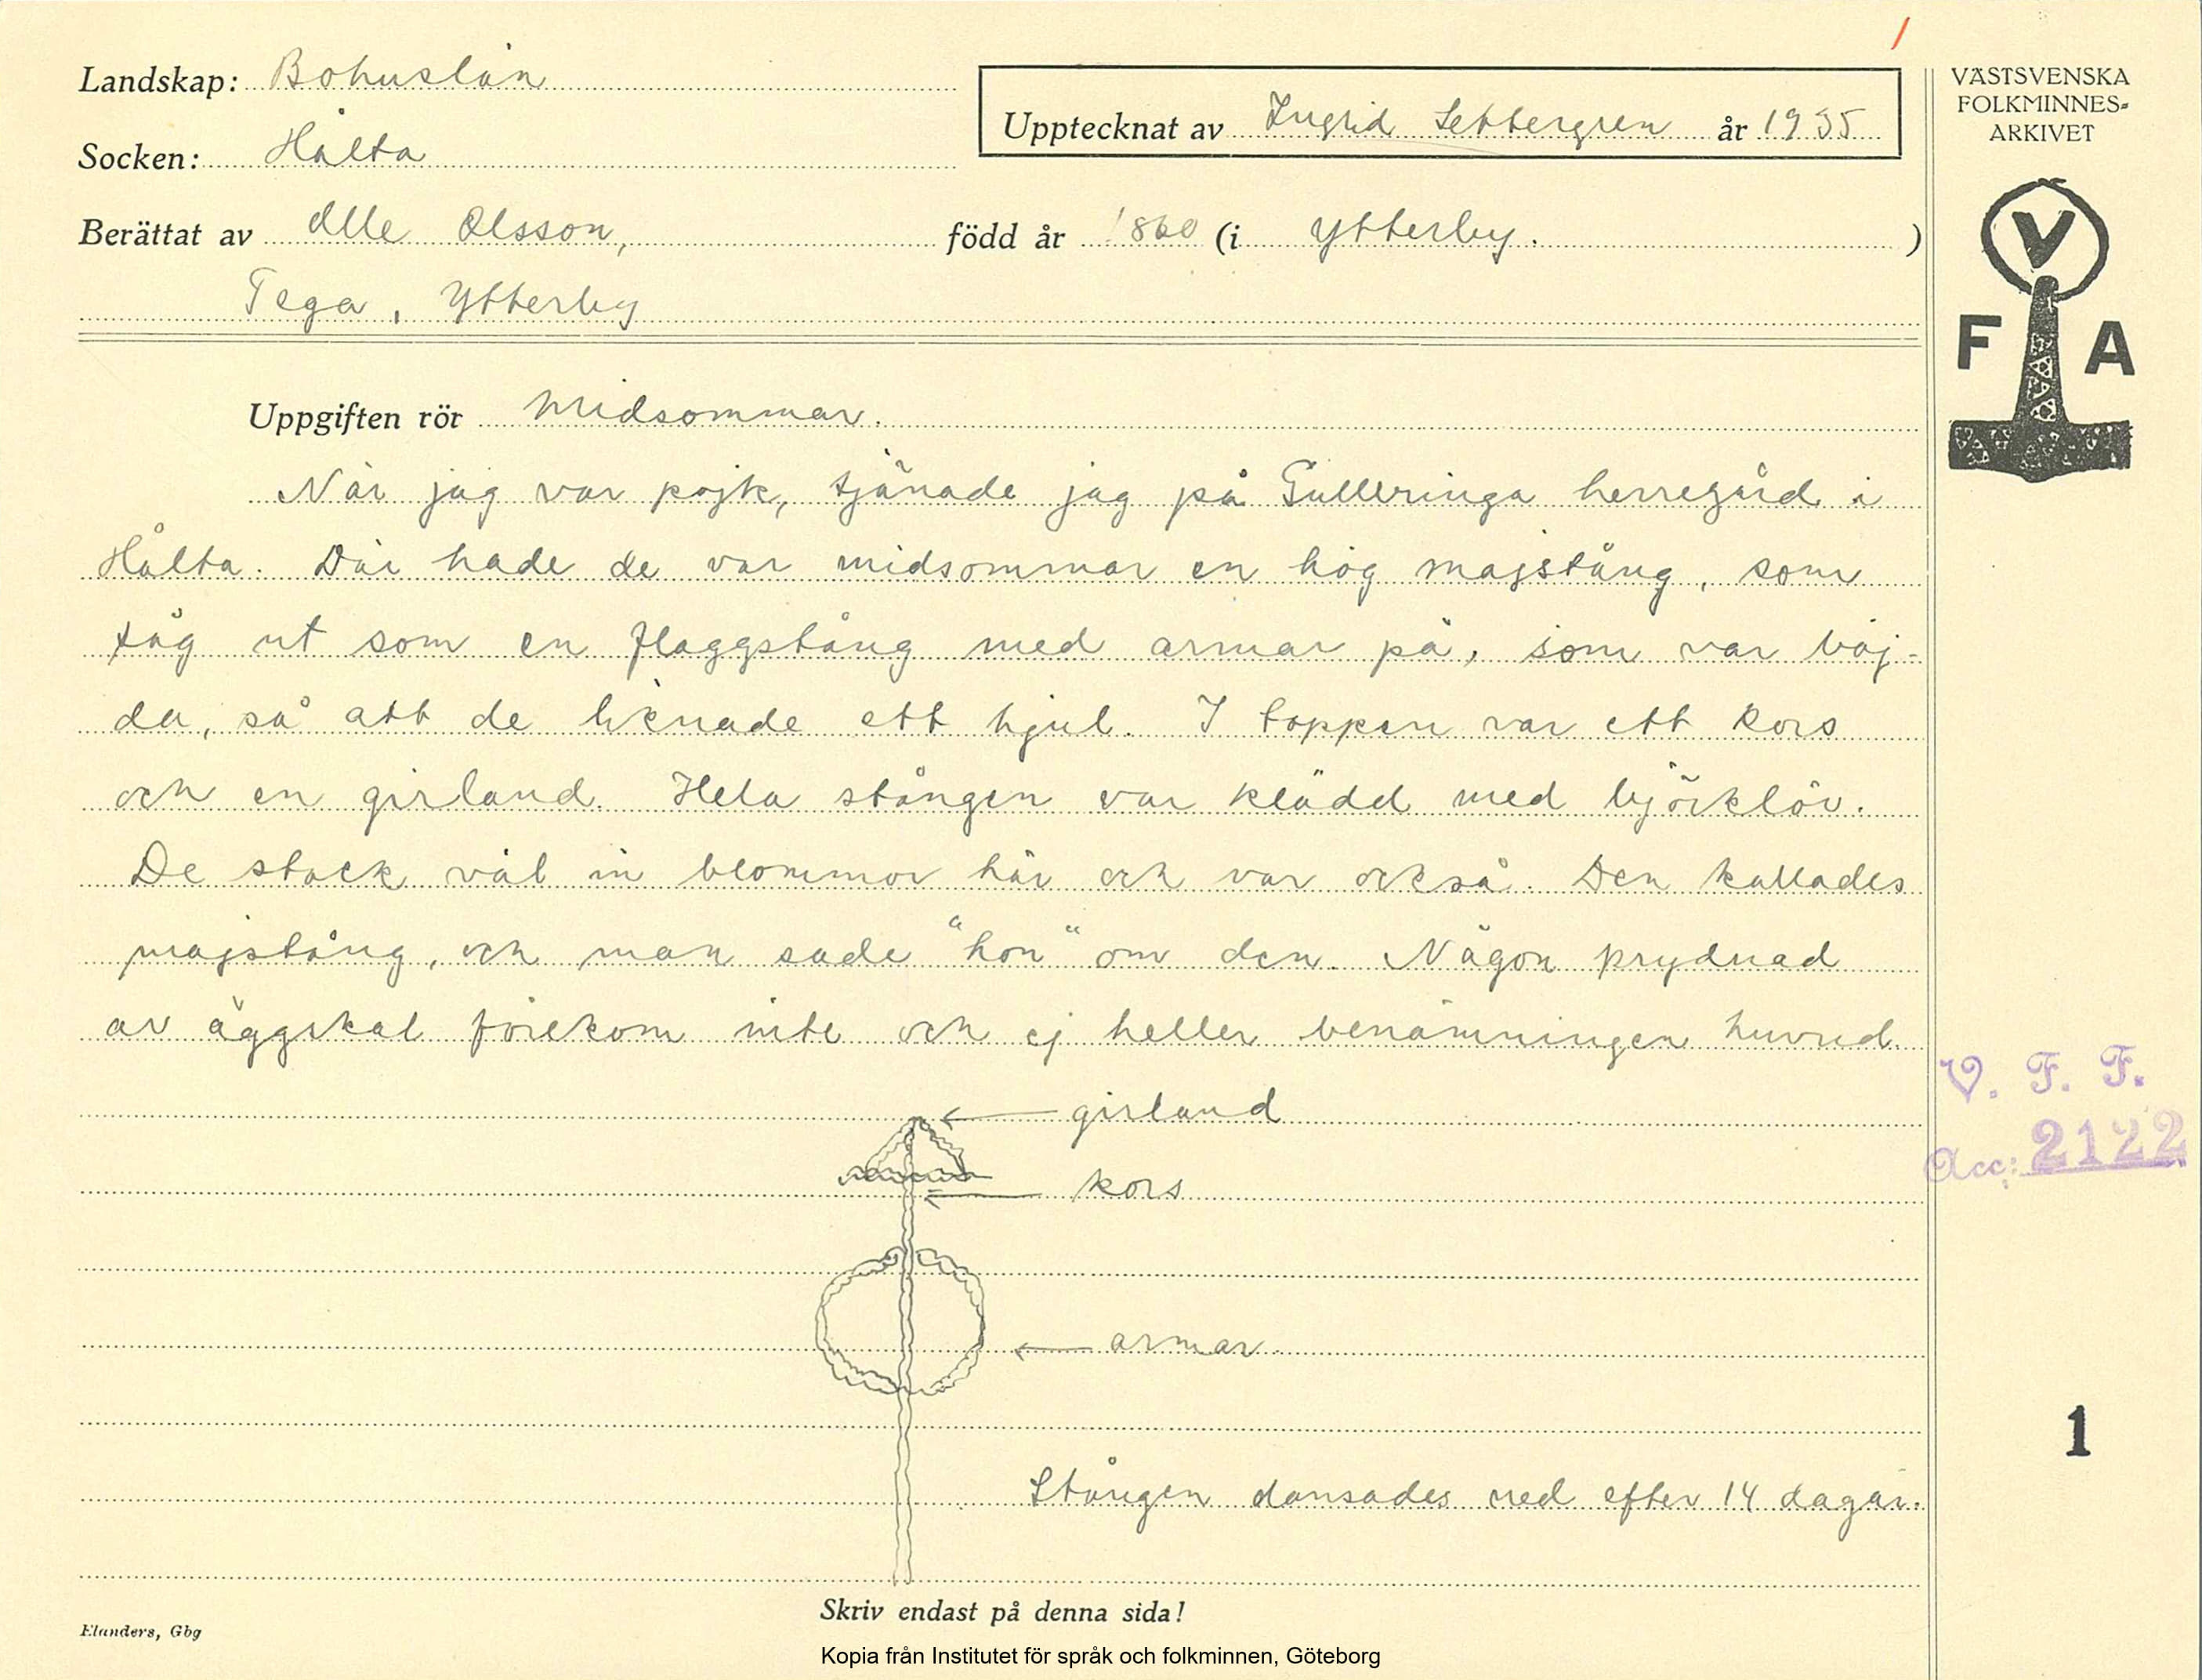 Landskap: Bohuslän
Socken: Hålta
Upptecknat av Ingrid Settergren år 1935
Berättat av Olle Olsson, född år 1860 (i Ytterby. )
Tega, Ytterby
Uppgiften rör Midsommar.
När jag var pojk, tjänade jag på Gulleringa herregård i
Hålta. Där hade de var midsommar en hög majstång, som
såg ut som en flaggstång med armar på, som var böj-
da, så att de liknade ett hjul. I toppen var ett kors
och en girland. Hela stången var klädd med björklöv.
De stack väl in blommor här och var också. Den kallades
majstång, och man sade "hon" om den. Någon prydnad
av äggskal förekom inte och ej heller benämningen huvud.
girland
kors
armar
Stången dansades ned efter 14 dagar.
Skriv endast på denna sida!
Elanders, Gbg
Kopia från Institutet för språk och folkminnen, Göteborg
VÄSTSVENSKA
FOLKMINNES-
ARKIVET
V
F A
V. F. F.
Acc: 2122
1